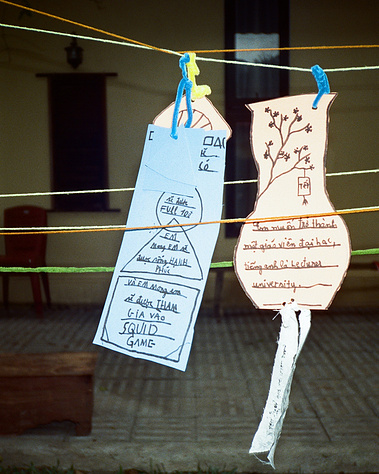 sẽ được
FULL 10đ
EM
mong em sẽ
được sống HẠNH
PHÚC
Và EM mong em
sẽ được THAM
GIA VÀO
SQUID
GAME
TẾT
Em muốn trở thành
một giáo viên đại học,
tiếng anh là Lecturer
university